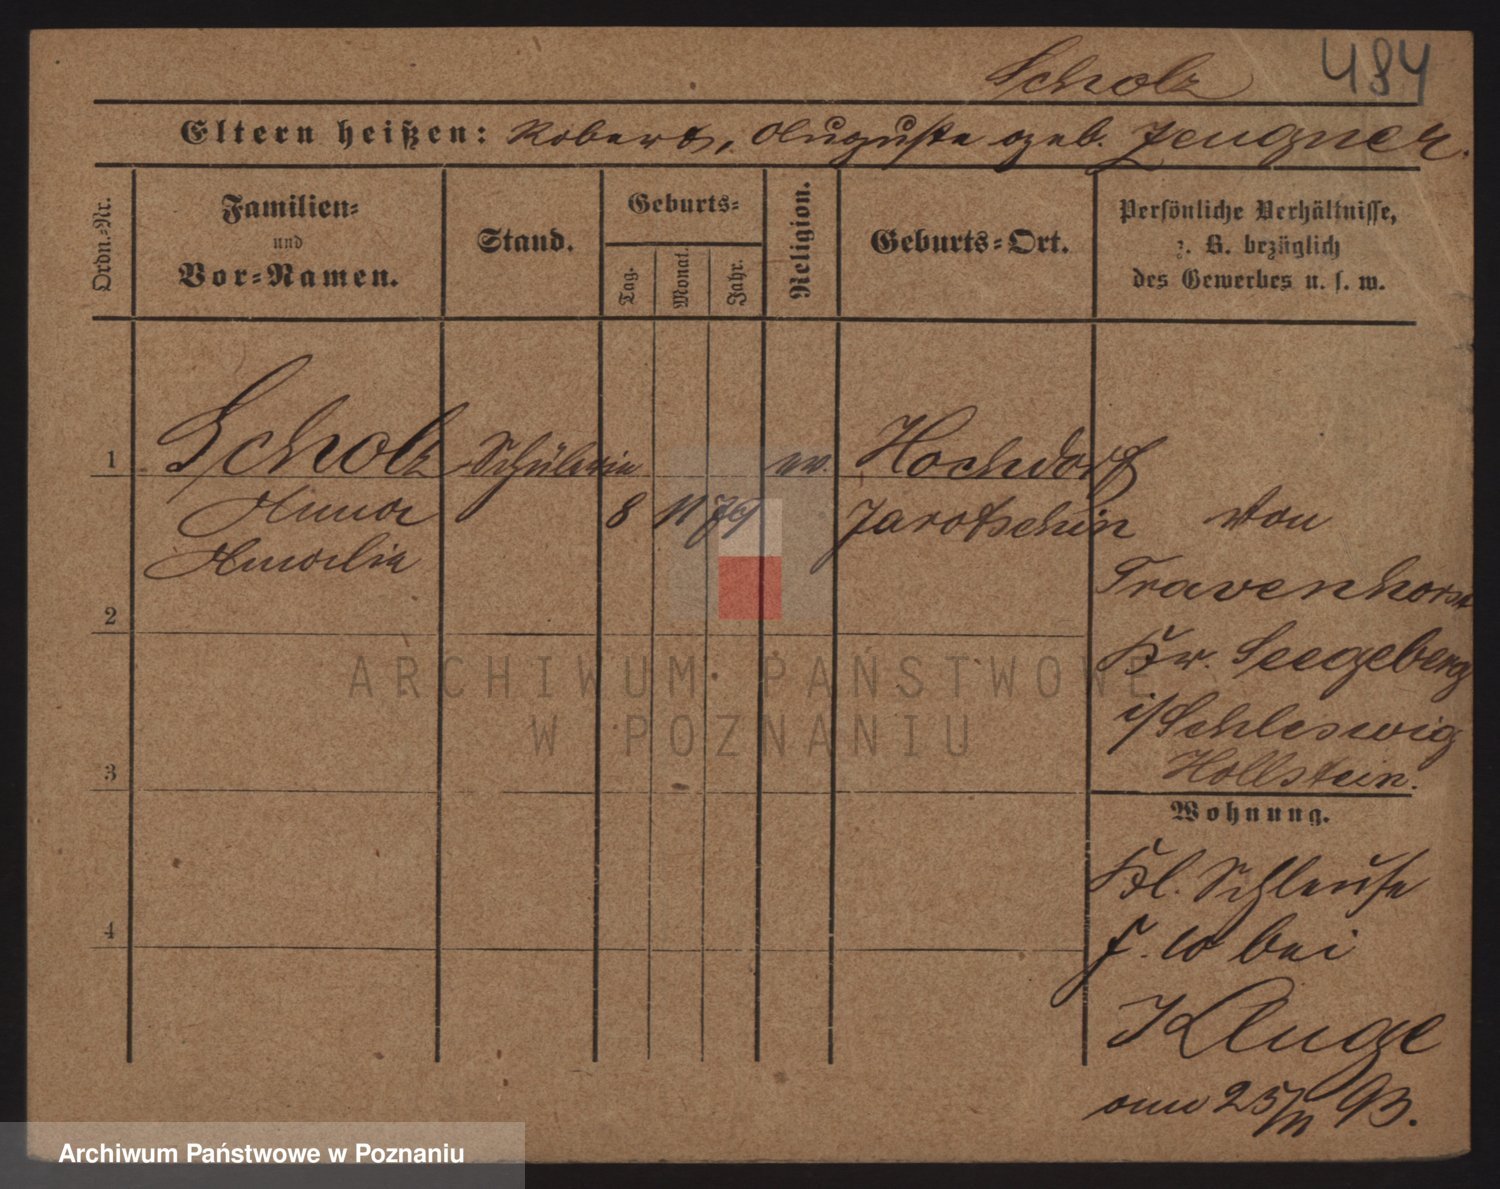 Scholz 484
Eltern heißen: Robert, Auguste geb. Zeugner.
Ordn.-Nr.
Familien-
und
Vor-Namen.
Stand.
Geburts-
Tag.
Monat.
Jahr.
Religion.
Geburts-Ort.
Persönliche Verhältnisse,
z. B. bezüglich
des Gewerbes u. s. w.
1 Scholz Schülerin ev. Hochdorf
Anna 8 11 79 Jarotschin von
Amalie
Travenhorst
2
Kr. Seegeberg
i/Schleswig
Hollstein.
3
Wohnung.
Kl. Schleuse
4
f. 10 bei
Kluge
am 25/11 93.
ARCHIWUM PAŃSTWOWE
W POZNANIU
Archiwum Państwowe w Poznaniu